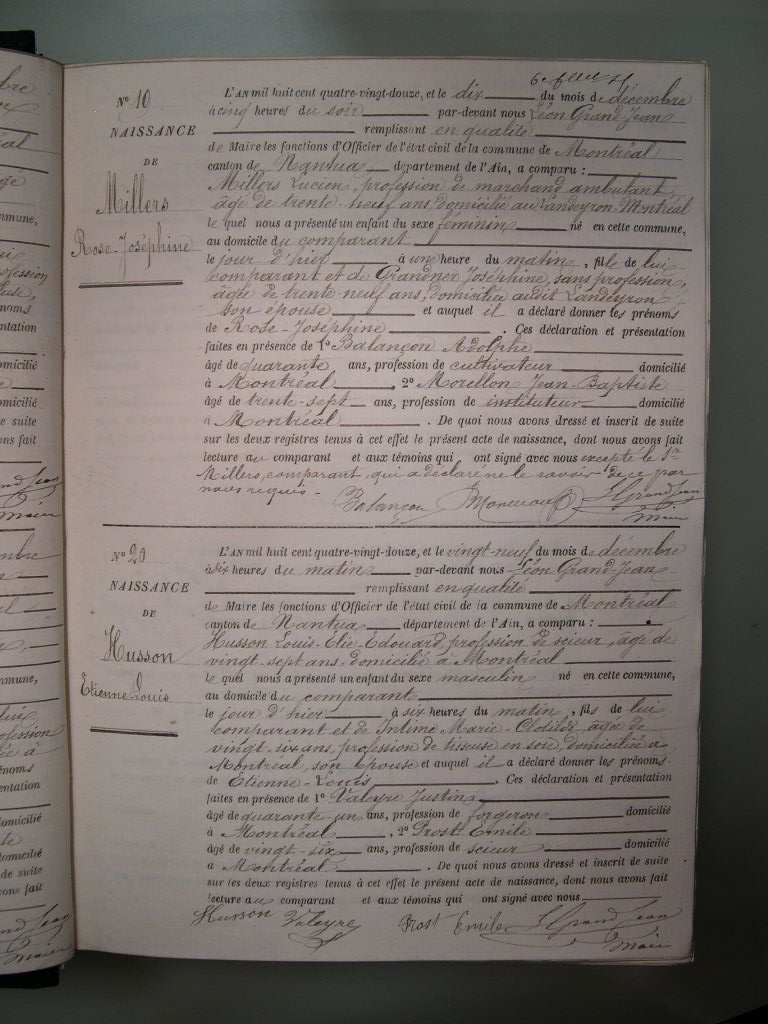 6e fllet
N° 10
NAISSANCE
DE
Millers
Rose-Joséphine
L'AN mil huit cent quatre-vingt-douze, et le dix du mois de décembre
à cinq heures du soir par-devant nous Léon Grand Jean
remplissant en qualité
de Maire les fonctions d'Officier de l'état civil de la commune de Montréal
canton de Nantua département de l'Ain, a comparu :
Millers Lucien, profession de marchand ambulant,
âgé de trente-neuf ans, domicilié au Landeyron Montréal
lequel nous a présenté un enfant du sexe féminin né en cette commune,
au domicile du comparant
le jour d'hier à une heure du matin, fille de lui
comparant et de Grandner Joséphine, sans profession,
âgée de trente-neuf ans, domiciliée audit Landeyron
son épouse et auquel il a déclaré donner les prénoms
de Rose-Joséphine . Ces déclaration et présentation
faites en présence de 1° Balançon Adolphe
âgé de quarante ans, profession de cultivateur domicilié
à Montréal , 2° Morellon Jean-Baptiste
âgé de trente-sept ans, profession de instituteur domicilié
à Montréal . De quoi nous avons dressé et inscrit de suite
sur les deux registres tenus à cet effet le présent acte de naissance, dont nous avons fait
lecture au comparant et aux témoins qui ont signé avec nous excepté le Sr
Millers, comparant, qui a déclaré ne le savoir de ce par
nous requis.
Balançon LGrandJean
Maire
N° 20
NAISSANCE
DE
Husson
Etienne Louis
L'AN mil huit cent quatre-vingt-douze, et le vingt-neuf du mois de décembre
à six heures du matin par-devant nous Léon Grand Jean
remplissant en qualité
de Maire les fonctions d'Officier de l'état civil de la commune de Montréal
canton de Nantua département de l'Ain, a comparu :
Husson Louis-Elie-Edouard, profession de scieur, âgé de
vingt-sept ans, domicilié à Montréal
lequel nous a présenté un enfant du sexe masculin né en cette commune,
au domicile du comparant
le jour d'hier à six heures du matin, fils de lui
comparant et de Intime Marie-Clotilde, âgée de
vingt-six ans, profession de tisseuse en soie, domiciliée a
Montréal, son épouse et auquel il a déclaré donner les prénoms
de Etienne-Louis . Ces déclaration et présentation
faites en présence de 1° Valeyre Justin
âgé de quarante-un ans, profession de forgeron domicilié
à Montréal , 2° Prost Emile
âgé de vingt-six ans, profession de scieur domicilié
a Montréal . De quoi nous avons dressé et inscrit de suite
sur les deux registres tenus à cet effet le présent acte de naissance, dont nous avons fait
lecture au comparant et aux témoins qui ont signé avec nous
Husson Valeyre Prost Emile LGrandJean
Maire